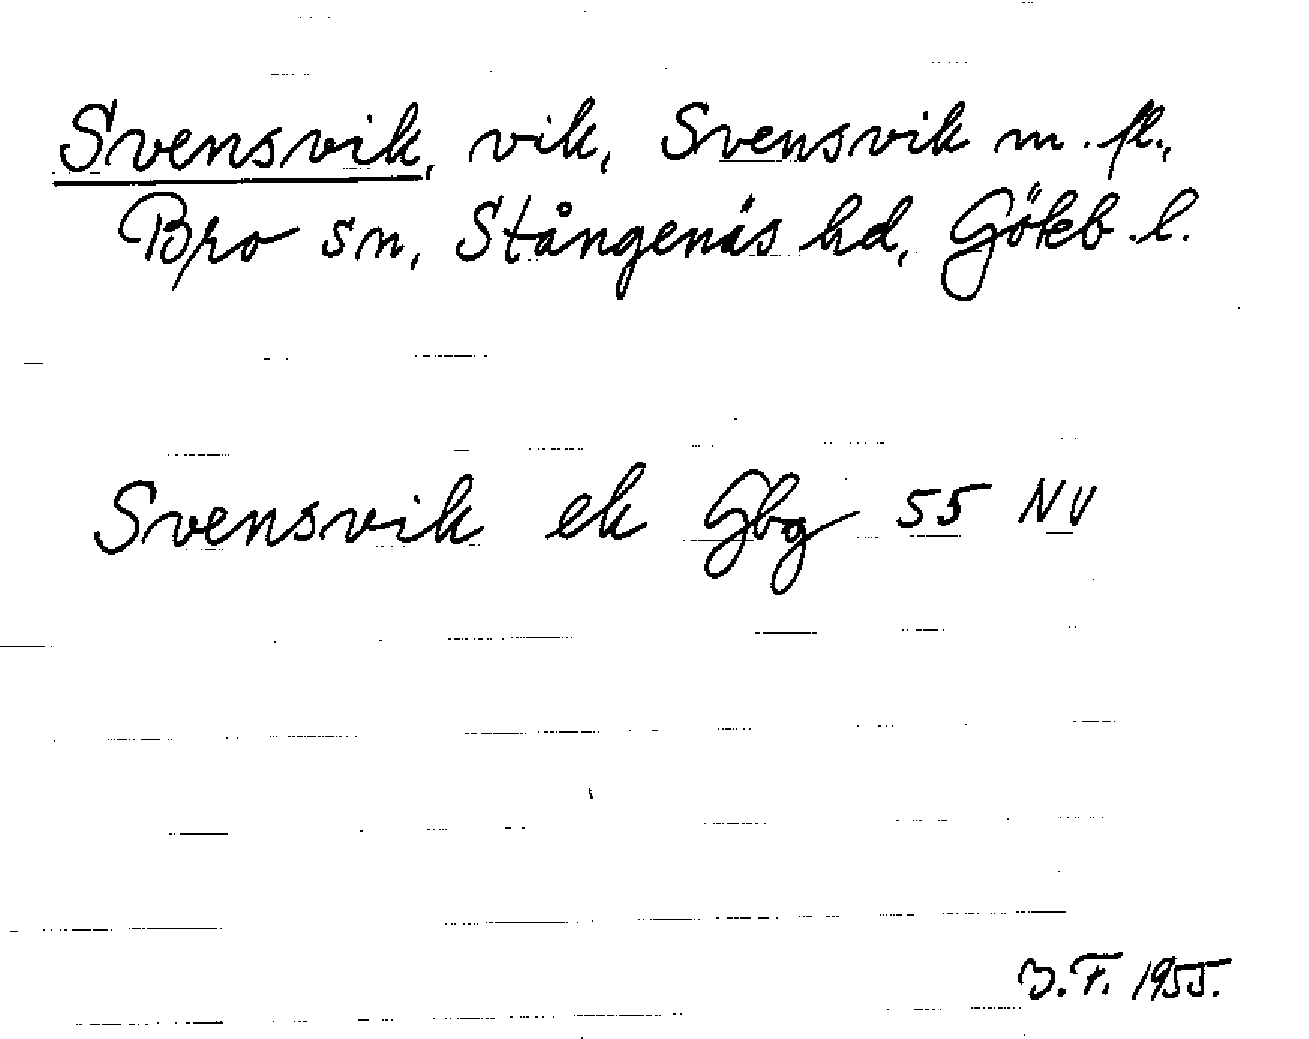 Svensvik, vik, Svensvik m. fl.,
Bro sn, Stångenäs hd, Götеb. l.
Svensvik ek Gbg 55 NV
J.F. 1955.